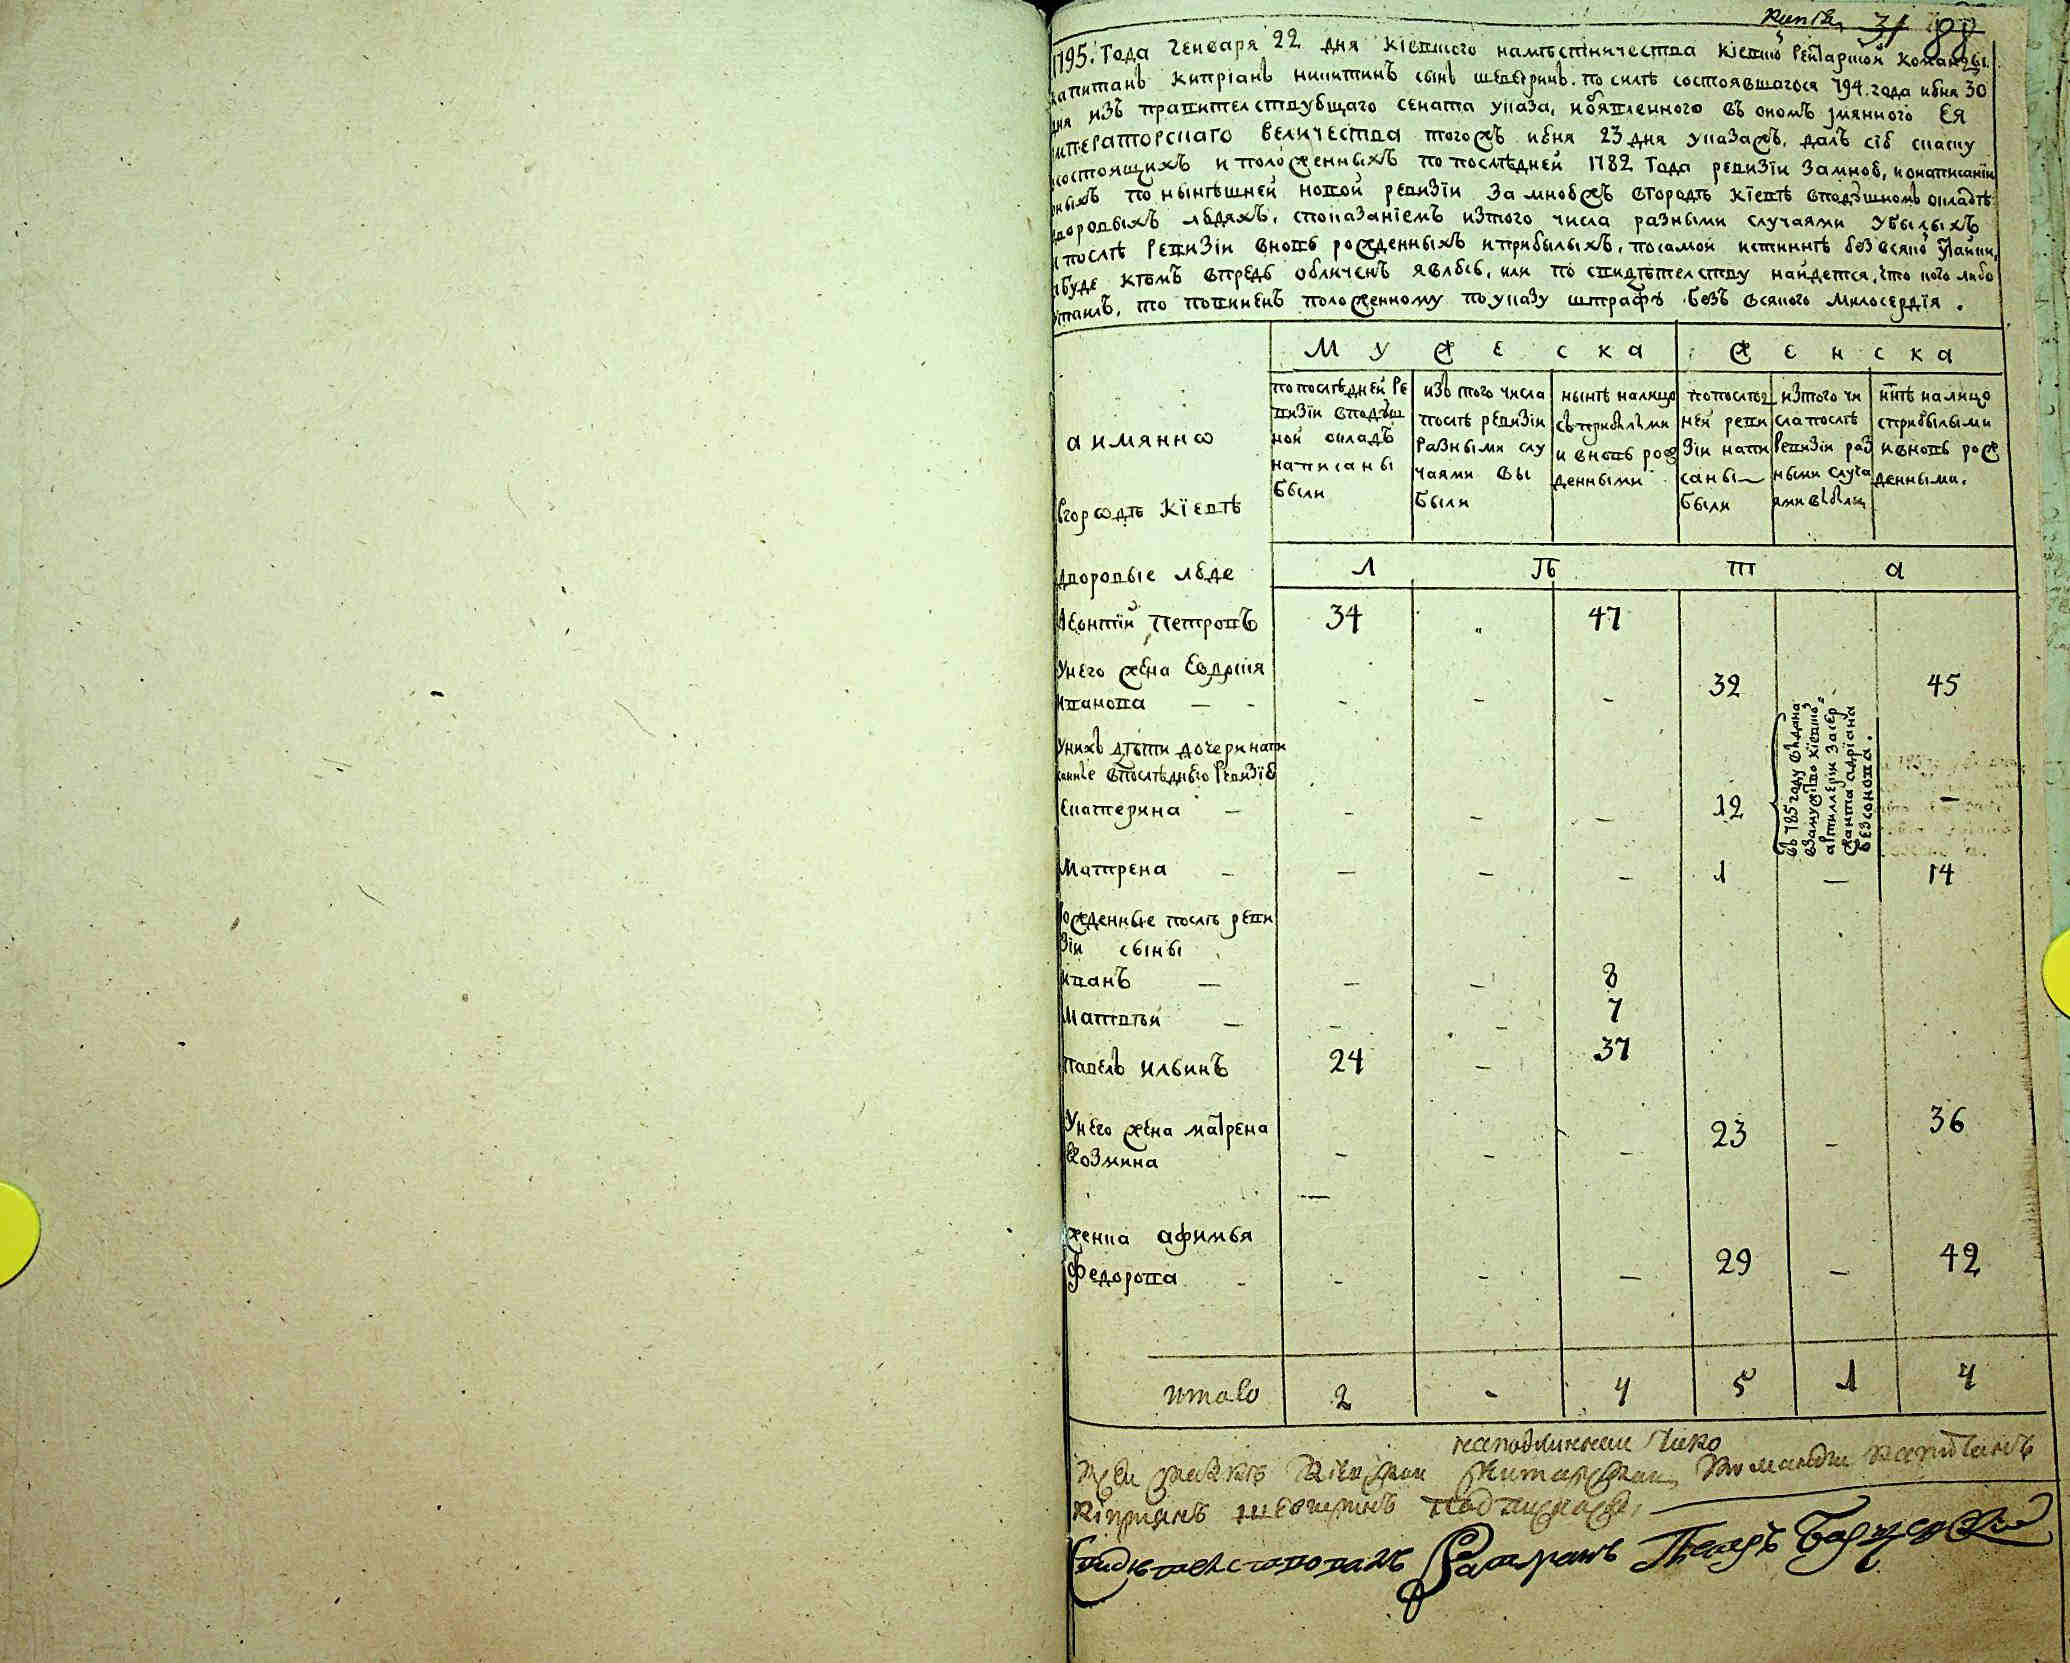 31 88
1795. Года Генваря 22 дня кіевского намѣстничества кіевской гентарской команды
капитанъ кипріанъ никитинъ сынъ шеверинъ. по силѣ состоявшагося 794. года июня 30
дня изъ правителствующаго сената указа, и объявленного въ ономъ имянного Ея
императорскаго величества тогожъ июня 23 дня указахъ, далъ сію скаску
состоящихъ и положенныхъ по послѣдней 1782 года ревизіи за мною, и о написаніи
оныхъ по нынѣшней новой ревизіи за мноюжъ в городѣ кіевѣ в подушномъ окладѣ
дворовыхъ людяхъ, с показаніемъ из того числа разными случаями убылыхъ
и послѣ ревизіи вновь рожденныхъ и прибылыхъ, по самой истиннѣ без всякой утайки,
а буде кѣмъ впредь обличенъ явлюсь, или по свидѣтелству найдется, что кого либо
утаилъ, то повиненъ положенному по указу штрафу безъ всякого милосердія.
а имянно
в городѣ кіевѣ
мужеска
женска
по послѣдней ревизіи в подушной окладъ написаны были
изъ того числа послѣ ревизіи разными случаями выбыли
нынѣ на лицо съ прибылыми и вновь рожденными
по послѣдней ревизіи написаны были
из того числа послѣ ревизіи разными случаями выбыли
ннѣ на лицо с прибылыми и вновь рожденными.
дворовые люде
Л ѣ т а
леонтій Петровъ 34 „ 47
У него жена Евдокія
иванова – - - - - 32 45
У нихъ дѣти дочери напи
санные в послѣднюю ревизію
Екатерина – - - - 12 –
въ 785 году выдана
в замужство кіевско=
артиллеріи за сер
жанта адріана
безсонова.
Матрена - – – – 1 – 14
рожденные послѣ реви
зіи сыны
иванъ – – – 8
Матвѣй – – – 7
павелъ ильинъ 24 – 37
У него жена матрена
козмина – – – 23 – 36
женка афимья
федорова - - - – 29 – 42
итого 2 - 4 5 1 4
на подлинной тако
кіевской команды капитанъ
кипріянъ шеверинъ подписался
Свидѣтелствовалъ Ратманъ